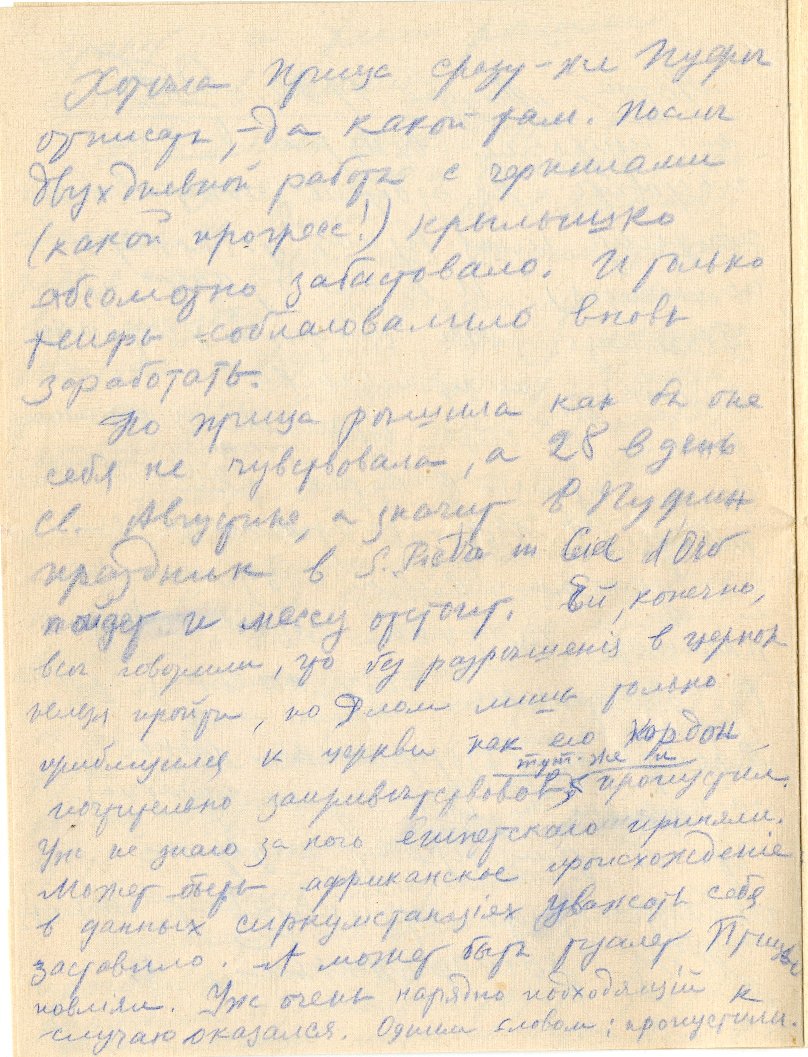 Хотѣла Прица сразу-же Пуфы
отписать, - да какой там. Послѣ
двухдневной работы с чернилами
(какой прогресс!) крылышко
абсолютно забастовало. И только
теперь соблаговолило вновь
заработать.
Но Прица рѣшила как бы она
себя не чувствовала, а 28 в день
св. Августина, а значит в Пуфин
праздник в S. Pietro in Ciel d'Oro
пойдет и мессу отстоит. Ей, конечно,
всѣ говорили, что без разрѣшенія в церков
нельзя пройти, но лишь только
приблизился к церкви как его кордон
почтительно запривѣтствовал тут-же и пропустил.
Уж не знаю за кого египетскаго приняли.
Может быть африканское происхожденіе
в данных сиркумстанціях уважать себя
заставило. А может быть туалет Прицы
повліял. Уж очень нарядно подходящій к
случаю оказался. Одним словом: пропустили.